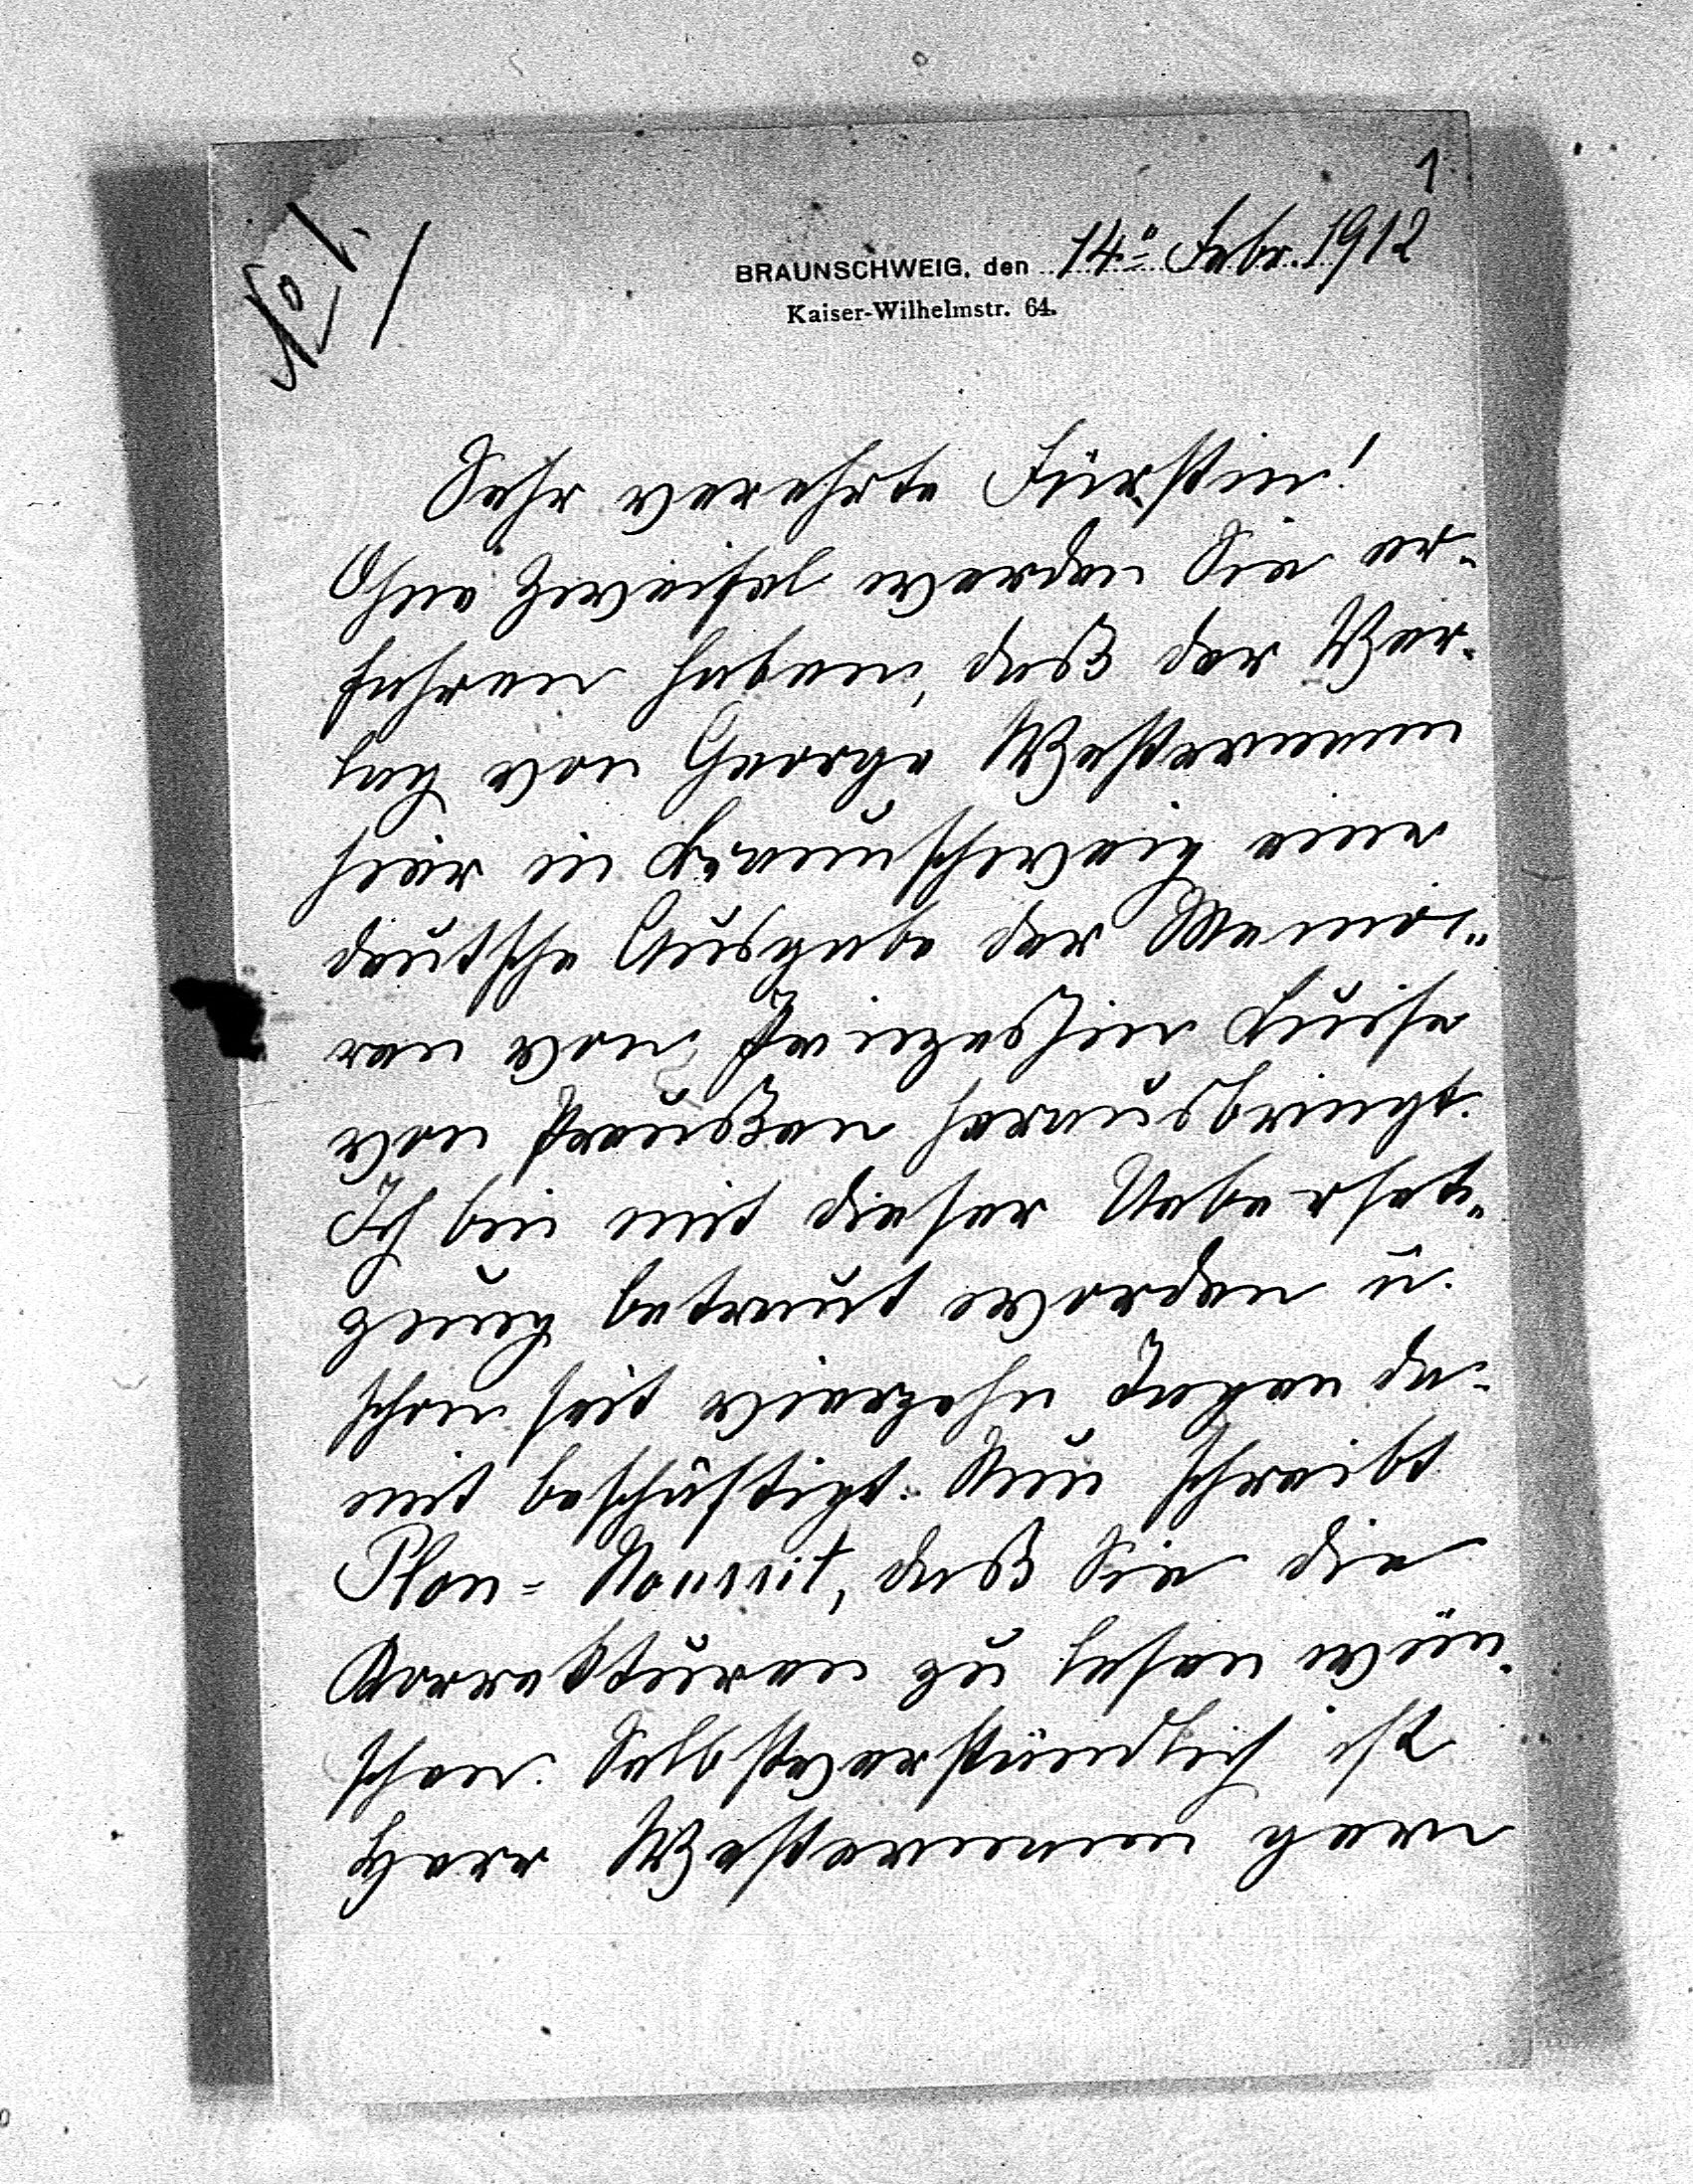 1
No 1.
BRAUNSCHWEIG, den 14. Febr. 1912
Kaiser-Wilhelmstr. 64.
Sehr verehrte Fürstin!
Ohne Zweifel werden Sie er-
fahren haben, daß der Ver-
lag von George Westermann
hier in Braunschweig eine
deutsche Ausgabe der Memoi-
ren von Prinzessin Luise
von Preußen herausbringt.
Ich bin mit dieser Ueberset-
zung betraut worden u.
schon seit vierzehn Tagen da-
mit beschäftigt. Nun schreibt
Plon-Nourrit, daß Sie die
Korrekturen zu lesen wün-
schen. Selbstverständlich ist
Herr Westermann gern